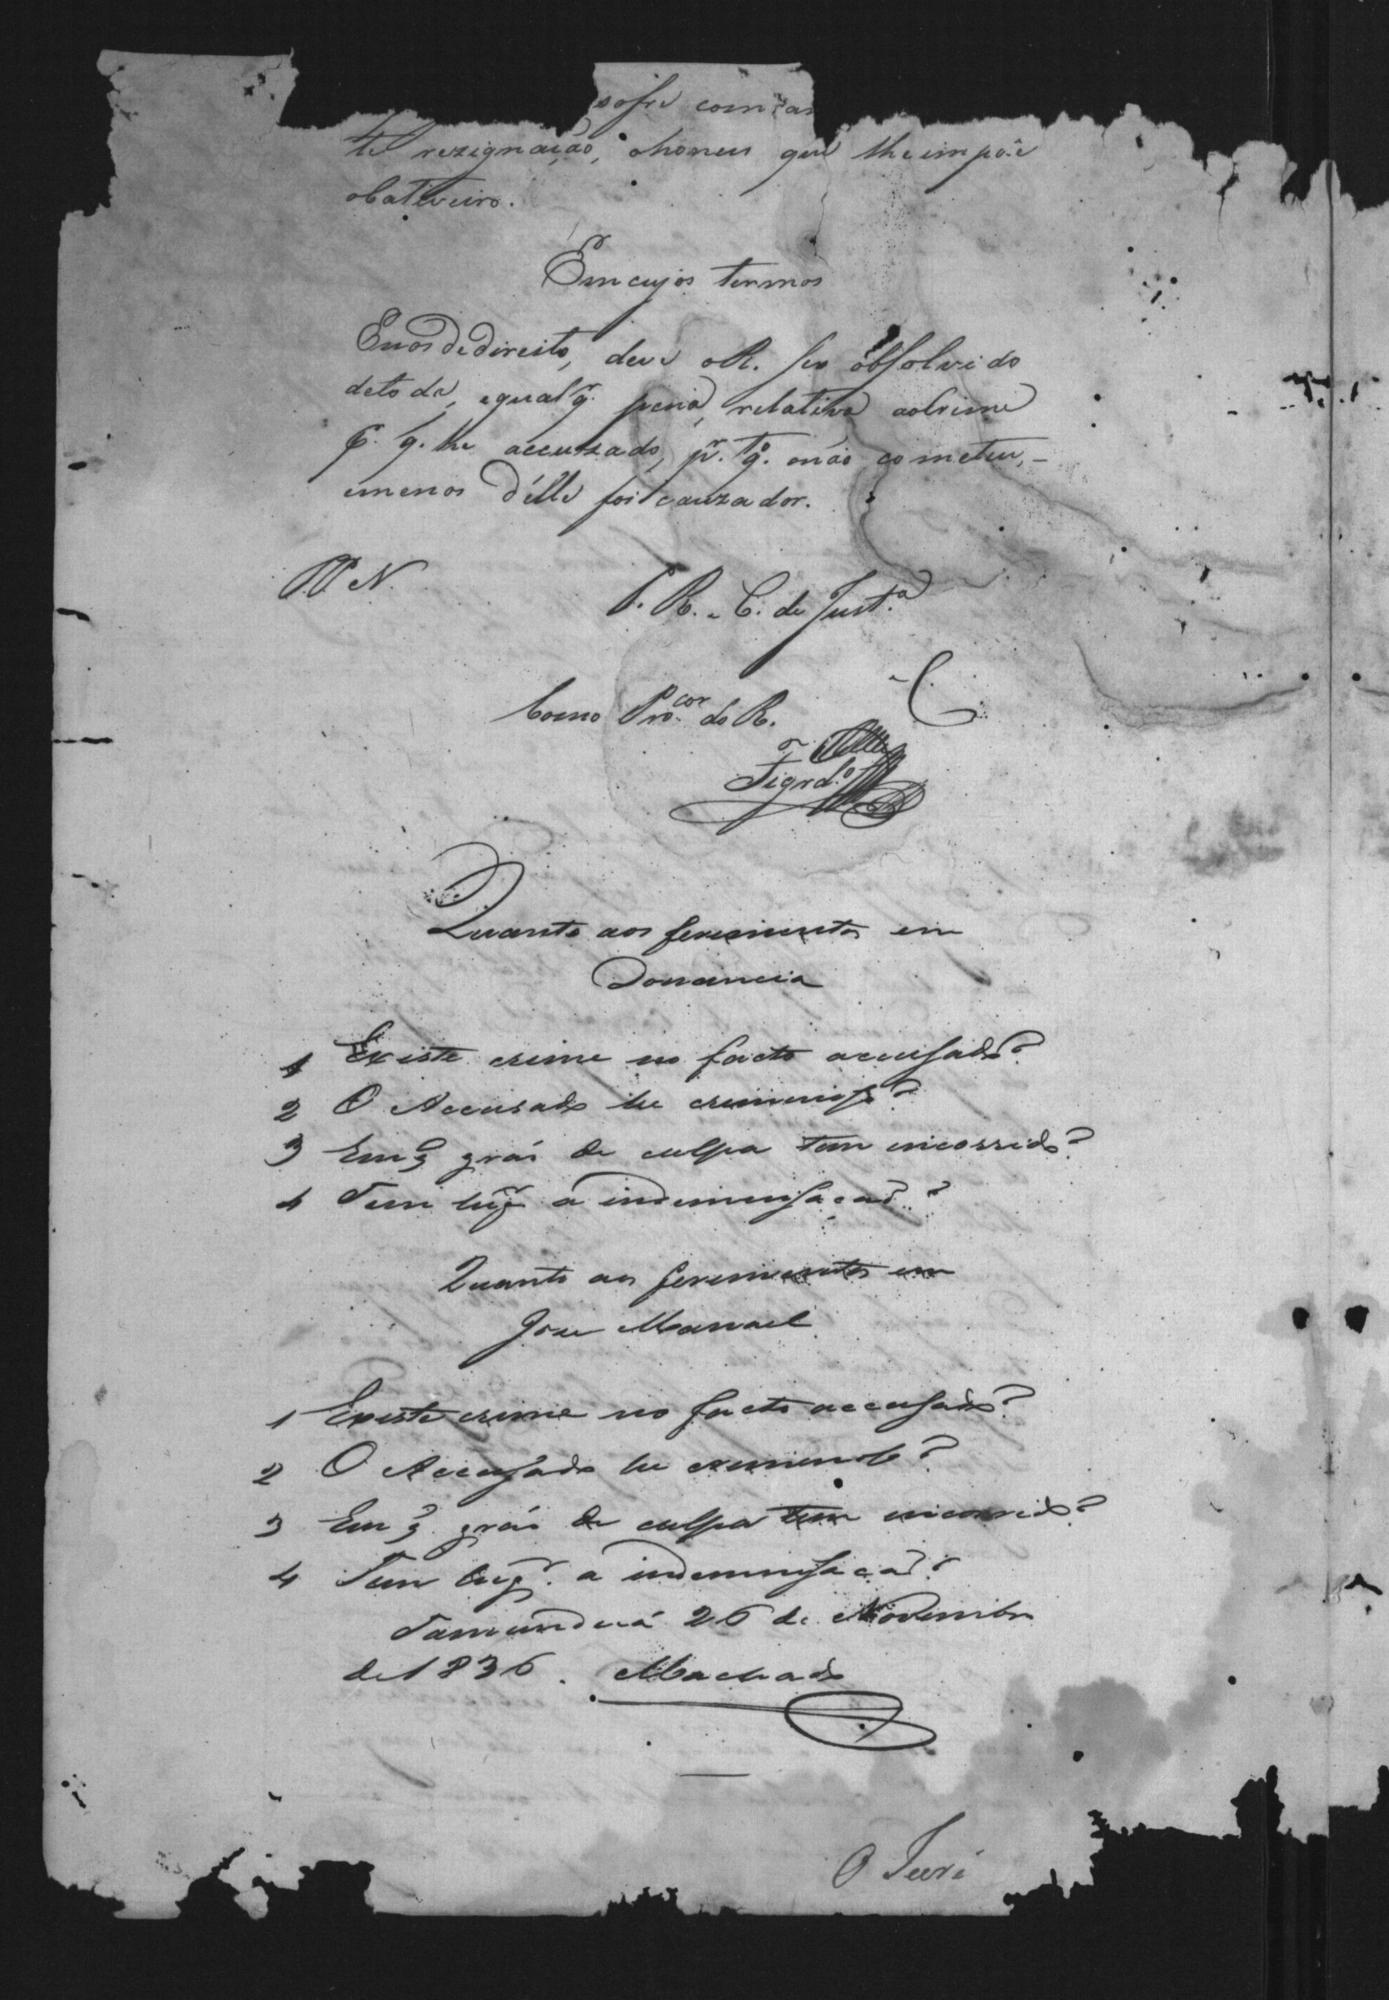 sofre com
te rezignação, o honeus que lhe impõe
o cativeiro.
Em cujos termos
E nos de direito, deve o R. ser absolvido
de toda, e qual q.r pena, relativa ao crime
p.r q. he accuzado, p.r q.to o não cometeu, -
e menos d'élle foi cauzador.
P. P. N.
P. R. e C. de Just.ª
e C.
Como Pro.cor do R.
Figrd.º
Quanto aos ferimentos em
Donancia
1 Existe crime no facto accusado?
2 O Accusado he criminoso?
3 Em q̃ gráo de culpa tem incorrido?
4 Tem lug.r a indemnisacão?
Quanto aos ferimentos em
Jose Manoel
1 Existe crime no facto accusado?
2 O Accusado he criminoso?
3 Em q̃ gráo de culpa tem incorrido?
4 Tem lug.r a indemnisacão?
Tamanduá 26 de Novembro
de 1836. Machado
O Juri